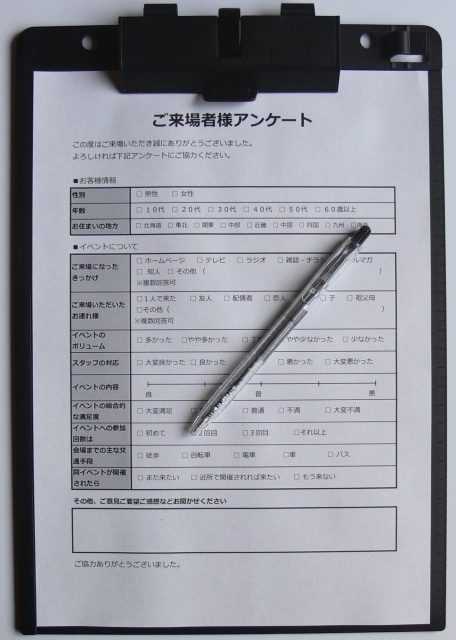 ご来場者様アンケート
この度はご来場いただき誠にありがとうございました。
よろしければ下記アンケートにご協力ください。
■お客様情報
性別 □ 男性 □ 女性
年齢 □ 10代 □ 20代 □ 30代 □ 40代 □ 50代 □ 60歳以上
お住まいの地方 □ 北海道 □ 東北 □ 関東 □ 中部 □ 近畿 □ 中国 □ 四国 □ 九州 □海外
■イベントについて
ご来場になった
きっかけ
□ ホームページ □ テレビ □ ラジオ □ 雑誌・チラシ ルマガ
□ 知人 □ その他 ( )
※複数回答可
ご来場いただいた
お連れ様
□1人で来た □ 友人 □ 配偶者 □ 恋人 □ 子 □ 祖父母
□その他 ( )
※複数回答可
イベントの
ボリューム
□ 多かった □ やや多かった □ やや少なかった □ 少なかった
スタッフの対応 □ 大変良かった □ 良かった □ 悪かった □ 大変悪かった
イベントの内容
良 普 悪
イベントの総合的
な満足度
□ 大変満足 □ 普通 □ 不満 □ 大変不満
イベントへの参加
回数は
□ 初めて □ 2回目 □ 3回目 □それ以上
会場までの主な交
通手段
□ 徒歩 □ 自転車 □ 電車 □車 □ バス
同イベントが開催
されたら
□ また来たい □ 近所で開催されれば来たい □ もう来ない
その他、ご意見ご要望ご感想などお聞かせください
ご協力ありがとうございました。